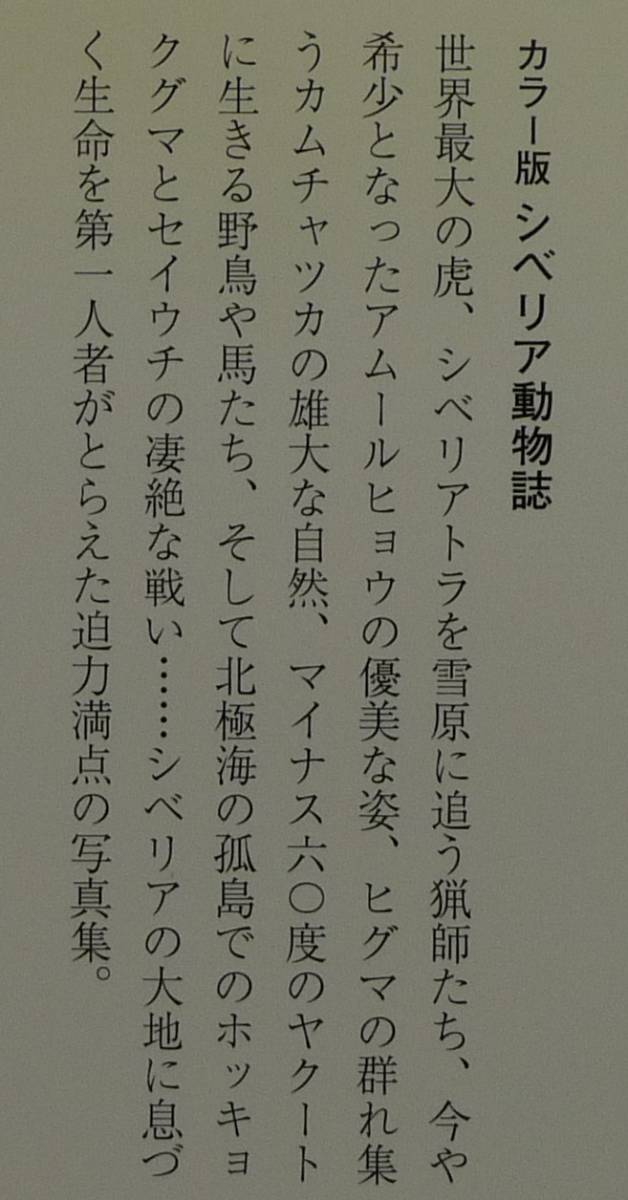 カラー版 シベリア動物誌
世界最大の虎、シベリアトラを雪原に追う猟師たち、今や
希少となったアムールヒョウの優美な姿、ヒグマの群れ集
うカムチャツカの雄大な自然、マイナス六〇度のヤクート
に生きる野鳥や馬たち、そして北極海の孤島でのホッキョ
クグマとセイウチの凄絶な戦い……シベリアの大地に息づ
く生命を第一人者がとらえた迫力満点の写真集。